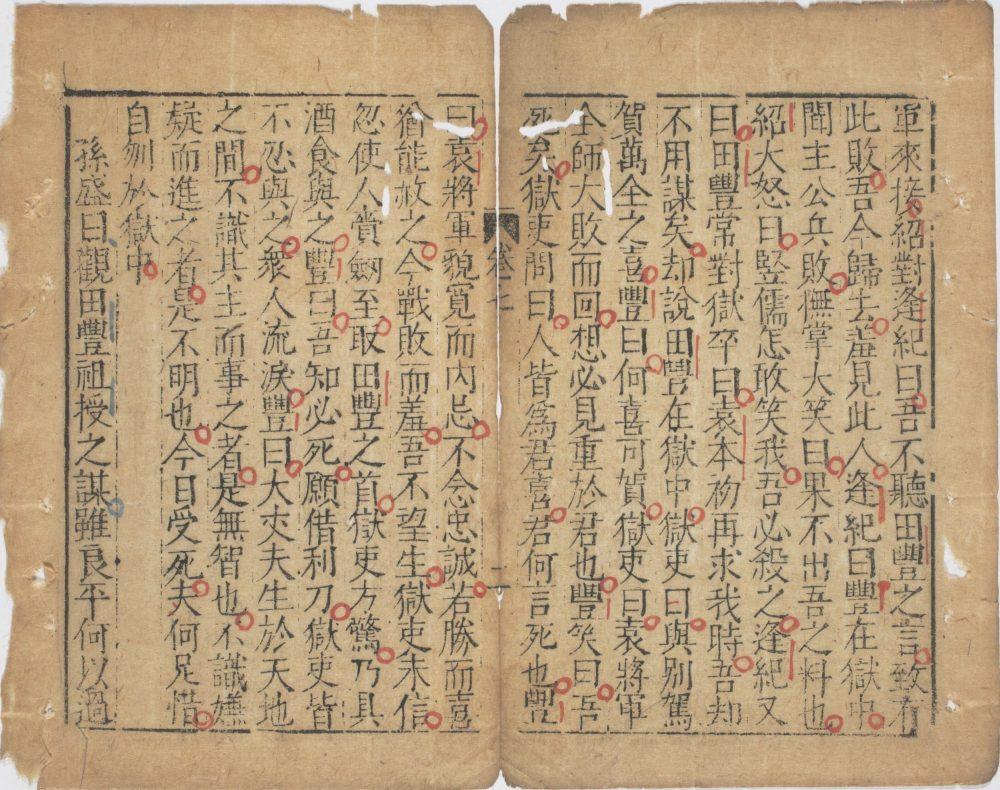 軍來接紹對逢紀曰吾不聽田豐之言致有
此敗吾今歸去羞見此人逢紀曰豐在獄中
聞主公兵敗撫掌大笑曰果不出吾之料也
紹大怒曰豎儒怎敢笑我吾必殺之逢紀又
曰田豐常對獄卒曰袁本初再求我時吾却
不用謀矣却說田豐在獄中獄吏曰與別駕
賀萬全之喜豐曰何喜可賀獄吏曰袁將軍
全師大敗而回想必見重於君也豐笑曰吾
死矣獄吏問曰人皆爲君喜君何言死也豐
卷之七
二
曰袁將軍貌寬而內忌不念忠誠若勝而喜
猶能赦之今戰敗而羞吾不望生獄吏未信
忽使人賫劔至取田豐之首獄吏方驚乃具
酒食與之豐曰吾知必死願借利刀獄吏皆
不忍與之衆人流淚豐曰大丈夫生於天地
之間不識其主而事之者是無智也不識嫌
疑而進之者是不明也今日受死夫何足惜
自刎於獄中
孫盛曰觀田豐祖授之謀雖良平何以過